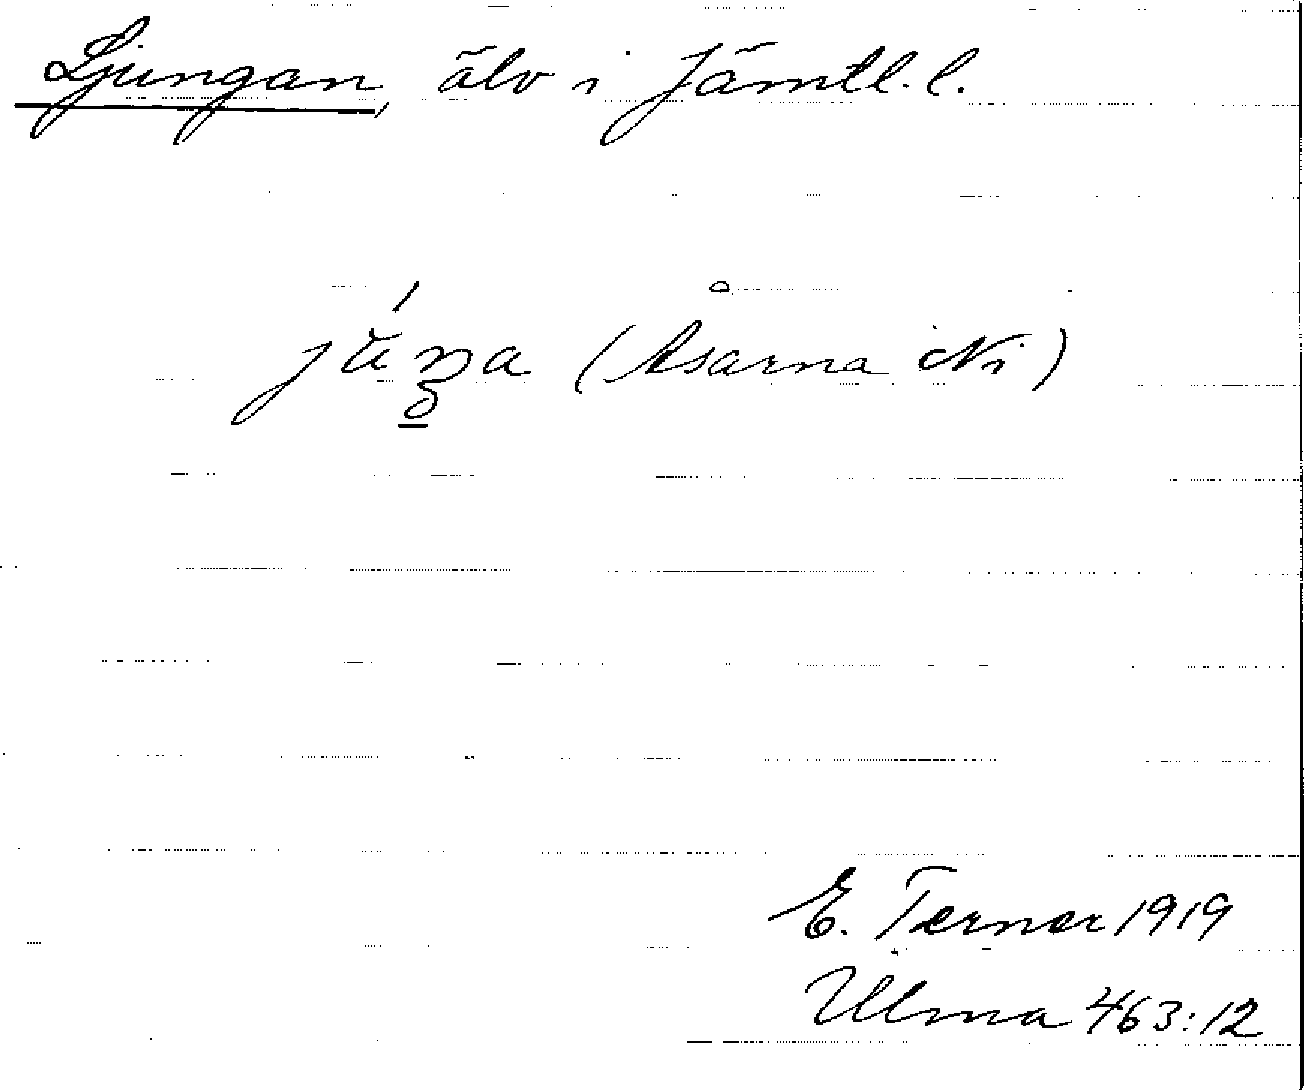 Ljungan, älv i Jämtl. l.
(Åsarna Ni)
E. Ternér 1919
Ulma 463:12